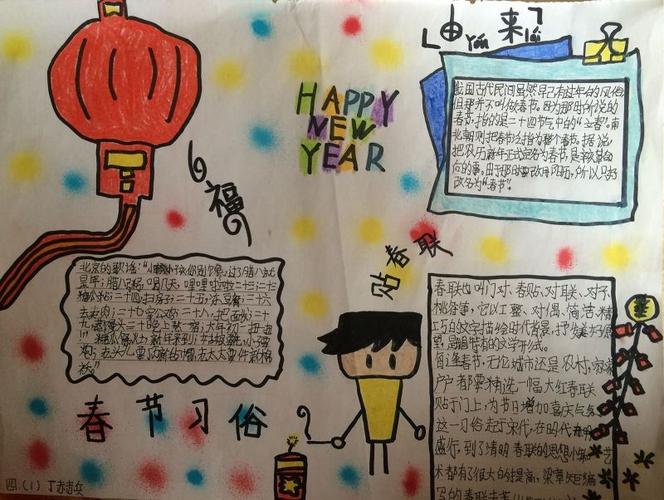 由yóu 来lái
我国古代民间虽然早已有过年的风俗
但那并不叫做春节。因为那时所说的
春节,指的是二十四节气中的"立春"。南
北朝则把春节泛指为整个春节。据说
把农历新年正式定名为春节,是
的事。由于那时要改用 历,所以只好
改名为"春节"。
HAPPY
NEW
YEAR
福
北京的歌谣:"小孩小孩你别馋,过了腊八就
是年;腊八粥,喝几天,哩哩啦啦二十三;二十三
糖瓜粘;二十四扫房子;二十五冻豆腐;二十六
去买肉;二十七宰公鸡;二十八把面发;二十
九蒸馒头;三十晚上熬一宿;大年初一扭一扭
贴春联
春联也叫门对、春贴、对联、对子、
桃符等,它以工整、对偶、简洁、精
巧的文字描绘时代背景,抒发美好愿
望,是我国特有的文学形式。
每逢春节,无论城市还是农村,家家
户户都要精选一幅大红春联
贴于门上,为节日增加喜庆气氛
这一习俗起于宋代,在明代开始
盛行,到了清朝春联的思想 艺
术都有了很大的提高,梁章钜编
写的春联专
春节习俗
四、(1)丁